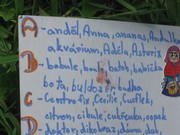 A-anděl, Anna, ananas, Andulka
akvárium, Adéla, Asterix
B-bobule, bouda, batoh, babička
bota, buldozer, budka
C-Centrofix, Cecílie, Curflek,
citron, cibule, cukřenka, copak
D-doktor, dikobraz, dama, dub,